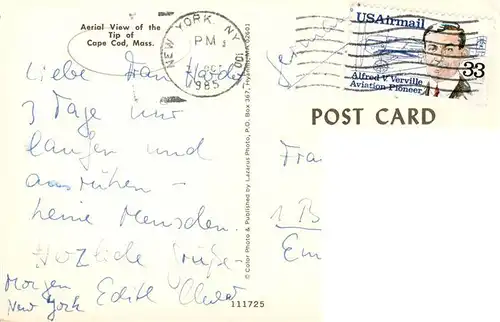 Aerial View of the
Tip of
Cape Cod, Mass.
NEW YORK, NY
PM
OCT
1985
USAirmail
33
Alfred V. Verville
Aviation Pioneer
POST CARD
Liebe Frau
3 Tage nur
laufen und
ausruhen -
keine Menschen.
Herzliche Grüße -
Morgen
New York
Edith
Fra
1 B
© Color Photo & Published by Lazarus Photo, P.O. Box 367, Hyannis, MA 02601
111725